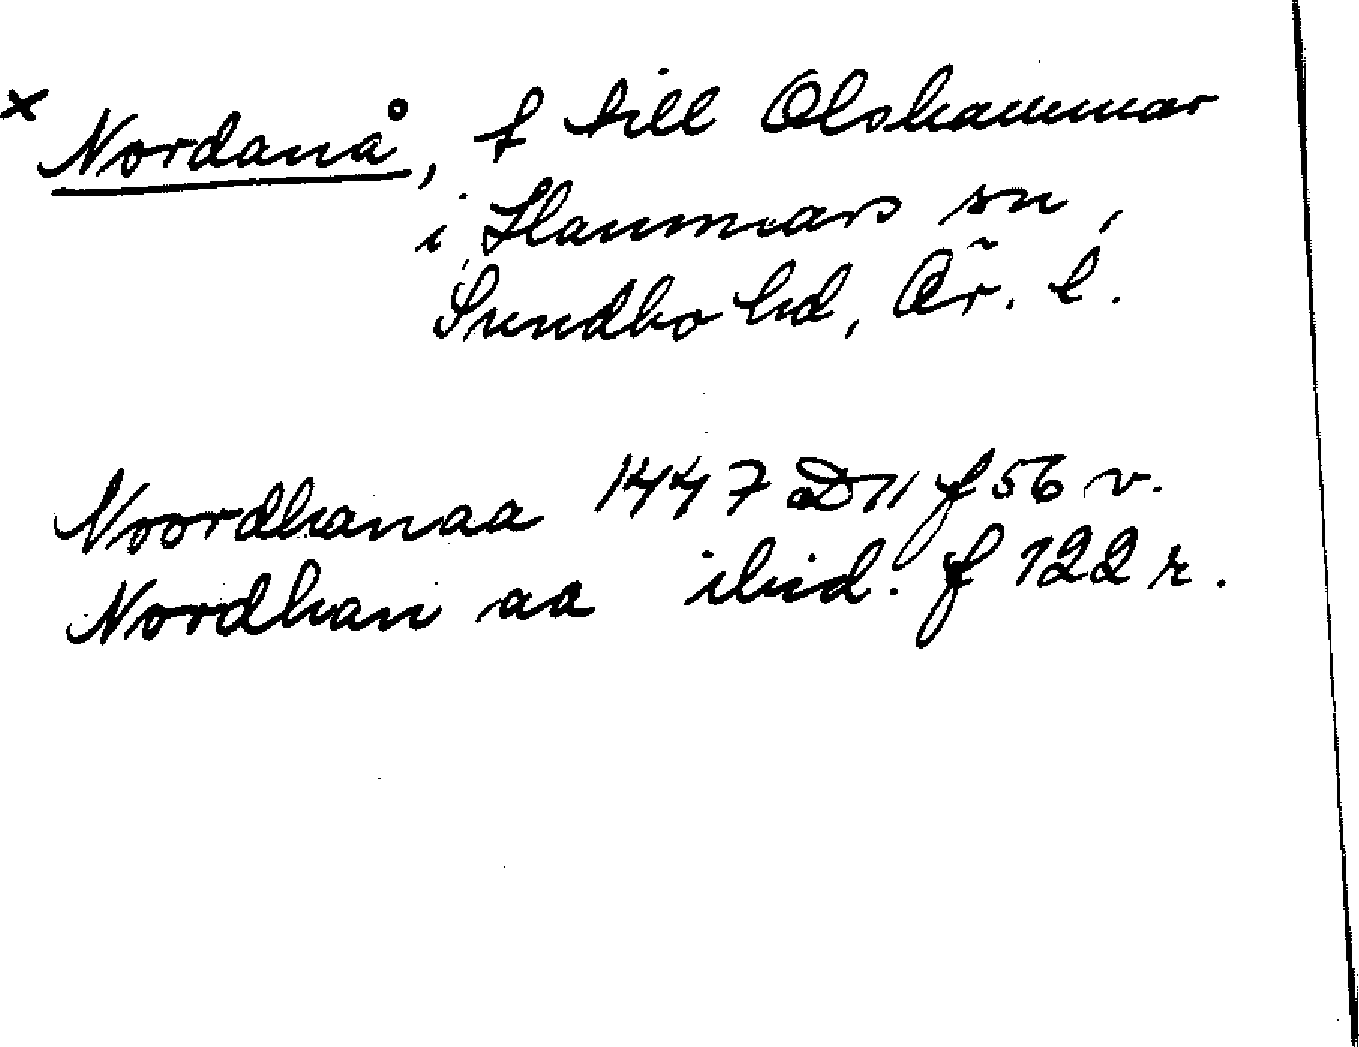 × Nordanå, f till Olshammar
i Hammars sn,
Sundbo hd, Ör. l.
Noordhanaa 1447 D 11 f 56 v.
Nordhan aa ibid. f 122 r.